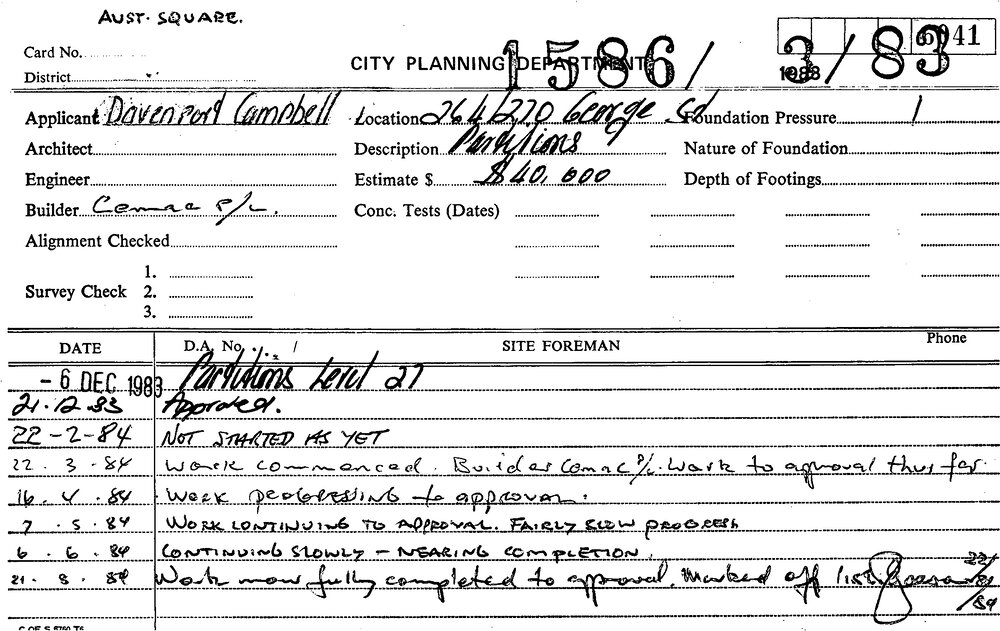 AUST. SQUARE.
6041
Card No.
1586/3/83
1983
District
CITY PLANNING DEPARTMENT
Applicant Davenport Campbell Location 264/270 George St Foundation Pressure
Architect Description Partitions Nature of Foundation
Engineer Estimate $ $40,000 Depth of Footings
Builder Comac P/L. Conc. Tests (Dates)
Alignment Checked
1.
Survey Check 2.
3.
DATE D.A. No. / SITE FOREMAN Phone
- 6 DEC 1983 Partitions Level 27
21.12.83 Approved.
22-2-84 NOT STARTED AS YET
22.3.84 Work commenced. Builder Comac P/L. Work to aproval thus far
16.4.84 WORK PROGRESSING to approval.
7.5.84 WORK CONTINUING TO APPROVAL. FAIRLY SLOW PROGRESS
6.6.84 CONTINUING SLOWLY - NEARING COMPLETION.
21.8.84 Work now fully completed to approval. Marked off list 22/8/84
C OF S 8760 T6